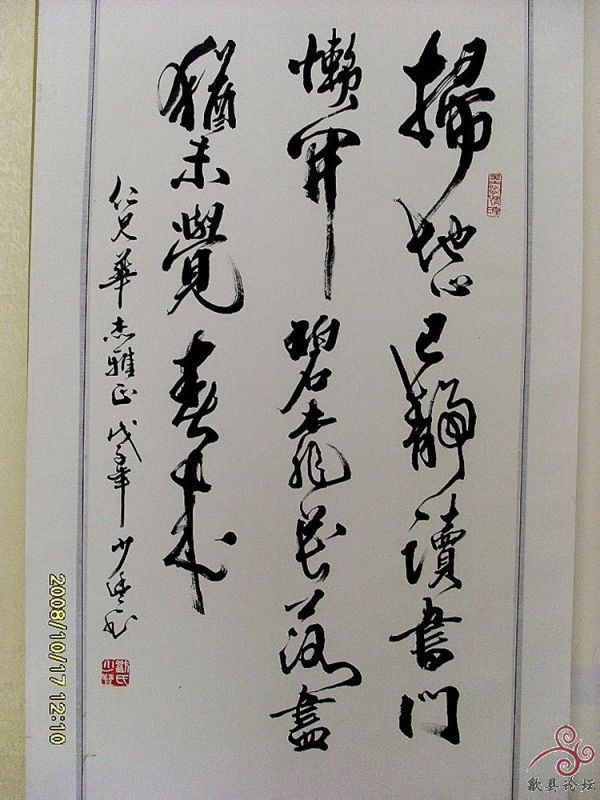 掃地心已靜讀書門
懶開碧桃花落盡
猶未覺春來
仁兄華杰雅正戊子年少
2008/10/17 12:10
歙县论坛